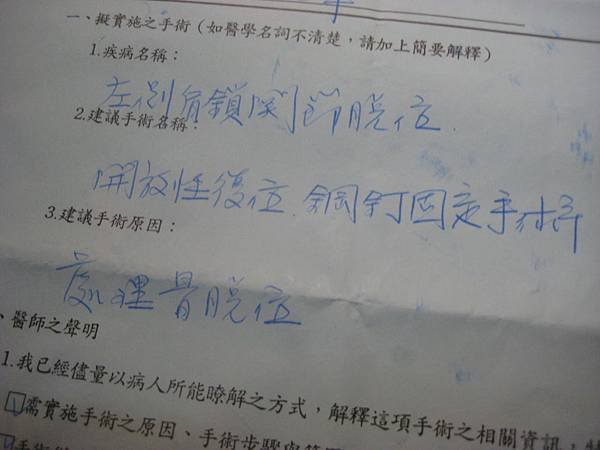 一、擬實施之手術（如醫學名詞不清楚，請加上簡要解釋）
1.疾病名稱：
左側肩鎖関節脫位.
2.建議手術名稱：
開放性復位.鋼釘固定手術
3.建議手術原因：
處理骨脫位
、醫師之聲明
1.我已經儘量以病人所能瞭解之方式，解釋這項手術之相關資訊，特
需實施手術之原因、手術步驟與範